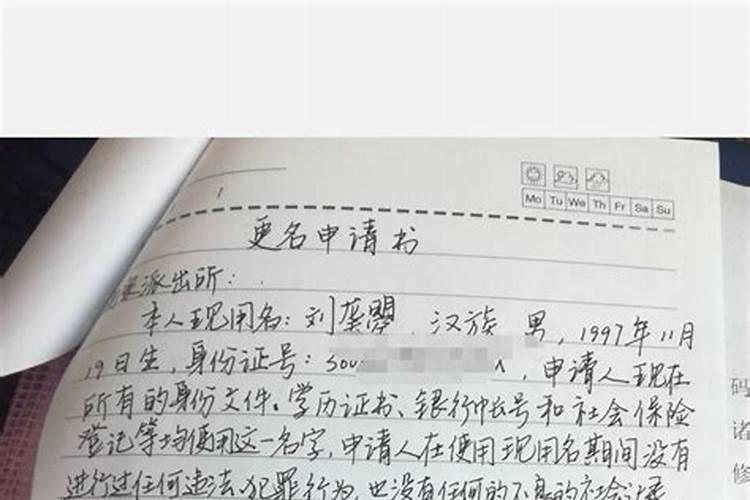 Mo Tu We Th Fr Sa Su
更名申请书
派出所：
本人现用名：刘龑曌，汉族，男，1997年11月
19日生，身份证号：，申请人现在
所有的身份文件。学历证书、银行帐号和社会保险
登记等均使用这一名字，申请人在使用现用名期间没有
进行过任何违法、犯罪行为，也没有任何的不良的社会记录
码
诸
修